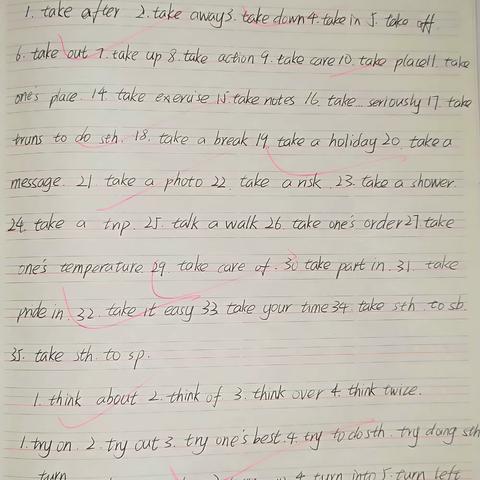 1. take after 2. take away 3. take down 4. take in 5. take off
6. take out 7. take up 8. take action 9. take care 10. take place 11. take
one's place. 14. take exercise 15. take notes 16. take... seriously 17. take
truns to do sth. 18. take a break 19. take a holiday 20. take a
message. 21. take a photo 22. take a risk. 23. take a shower.
24. take a trip. 25. talk a walk 26. take one's order 27. take
one's temperature 29. take care of. 30 take part in. 31. take
pride in. 32. take it easy 33 take your time 34. take sth. to sb.
35. take sth. to sp.
1. think about 2. think of 3. think over 4. think twice.
1. try on. 2. try out 3. try one's best. 4. try to do sth. try doing sth
turn 4. turn into 5. turn left